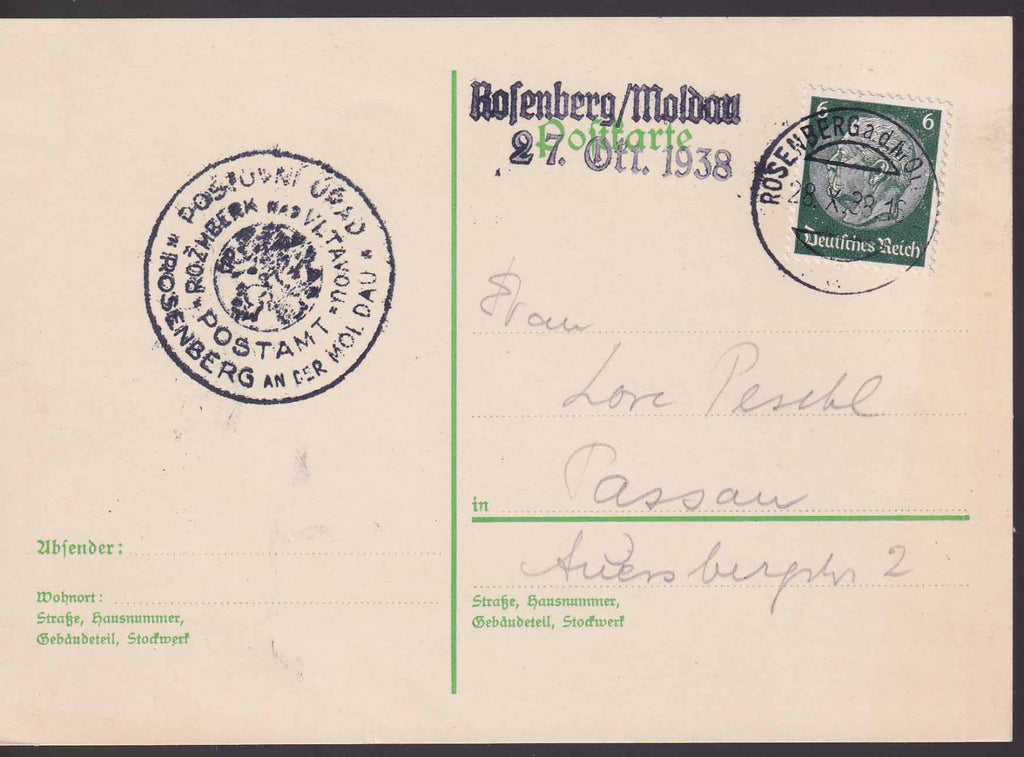 POŠTOVNÍ ÚŘAD
ROŽMBERK NAD VLTAVOU
POSTAMT
ROSENBERG AN DER MOLDAU
Absender:
Wohnort:
Straße, Hausnummer,
Gebäudeteil, Stockwerk
Rosenberg/Moldau
Postkarte
27. Okt. 1938
6 6
Deutsches Reich
ROSENBERG a d MOL
28. X. 38
Frau
Lore Peschl
in Passau
Auersbergstr 2
Straße, Hausnummer,
Gebäudeteil, Stockwerk